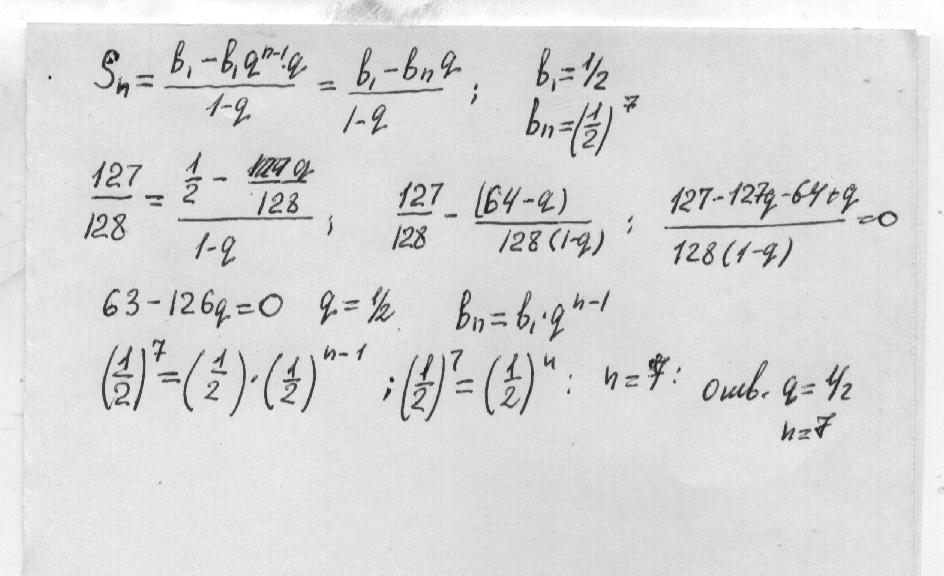 Sₙ = (b₁ - b₁qⁿ⁻¹·q)/(1-q) = (b₁ - bₙq)/(1-q) ; b₁ = 1/2
bₙ = (1/2)⁷
127/128 = (1/2 - q/128)/(1-q) ; 127/128 - (64-q)/(128(1-q)) ; (127-127q-64+q)/(128(1-q)) = 0
63 - 126q = 0 q = 1/2 bₙ = b₁·qⁿ⁻¹
(1/2)⁷ = (1/2)·(1/2)ⁿ⁻¹ ; (1/2)⁷ = (1/2)ⁿ : n = 7 : отв. q = 1/2
n = 7